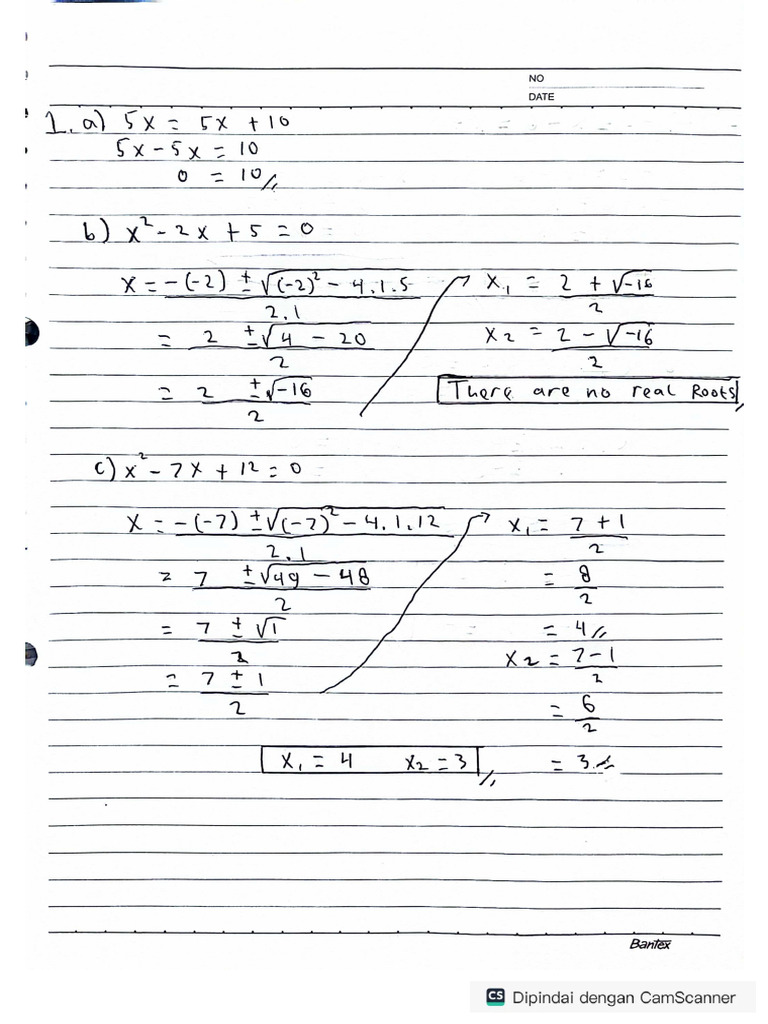 NO
DATE
1. a) 5x = 5x + 10
5x - 5x = 10
0 = 10//
b) x² - 2x + 5 = 0
x = -(-2) ± √(-2)² - 4.1.5
2.1
= 2 ± √4 - 20
2
= 2 ± √-16
2
x₁ = 2 + √-16
2
x₂ = 2 - √-16
2
There are no real Roots//
c) x² - 7x + 12 = 0
x = -(-7) ± √(-7)² - 4.1.12
2.1
= 7 ± √49 - 48
2
= 7 ± √1
2
= 7 ± 1
2
x₁ = 7 + 1
2
= 8
2
= 4//
x₂ = 7 - 1
2
= 6
2
= 3//
x₁ = 4 x₂ = 3//
Bantex
CS Dipindai dengan CamScanner